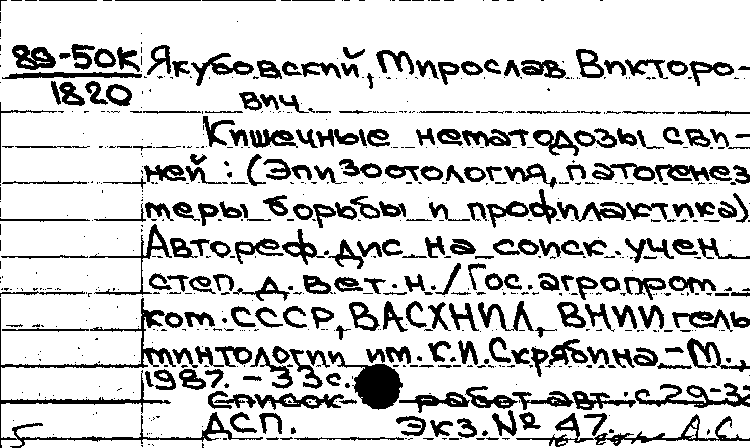 89-50К Якубовский, Мирослав Викторо-
1820
вич.
Кишечные нематодозы сви-
ней : (Эпизоотология, патогенез
меры борьбы и профилактика)
Автореф. дис на соиск. учен
степ. д. вет. н. / Гос. агропром.
ком. СССР, ВАСХНИЛ, ВНИИ гель
минтологии им. К.И. Скрябина - М.,
1987. - 33 с.
Список работ авт.: с. 29-3
ДСП. Экз. № 47.
5 А.С.